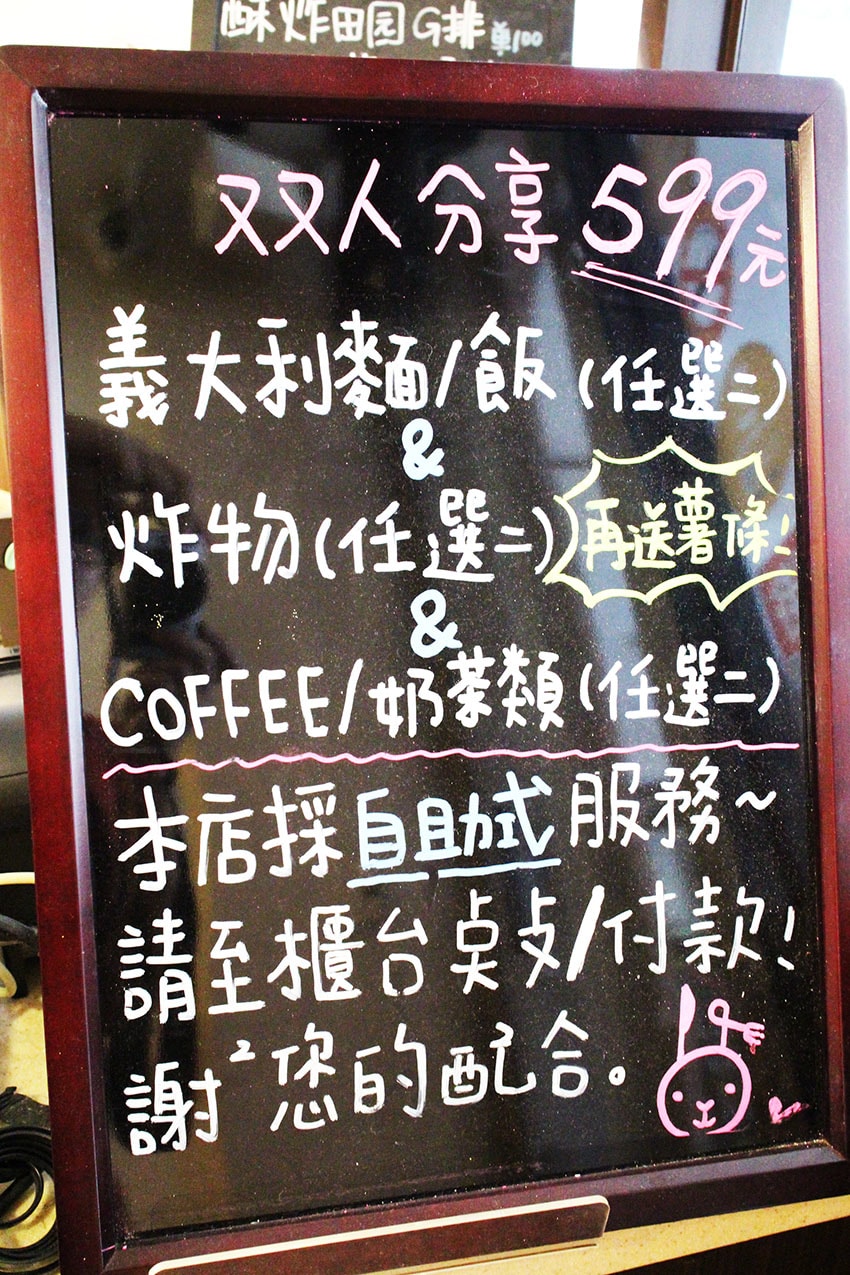 酥炸田园G排 单100
双人分享 599元
義大利麵/飯(任選二)
&
炸物(任選二) 再送薯條!
&
COFFEE/奶茶類(任選二)
本店採自助式服務~
請至櫃台点攴/付款!
謝²您的配合。